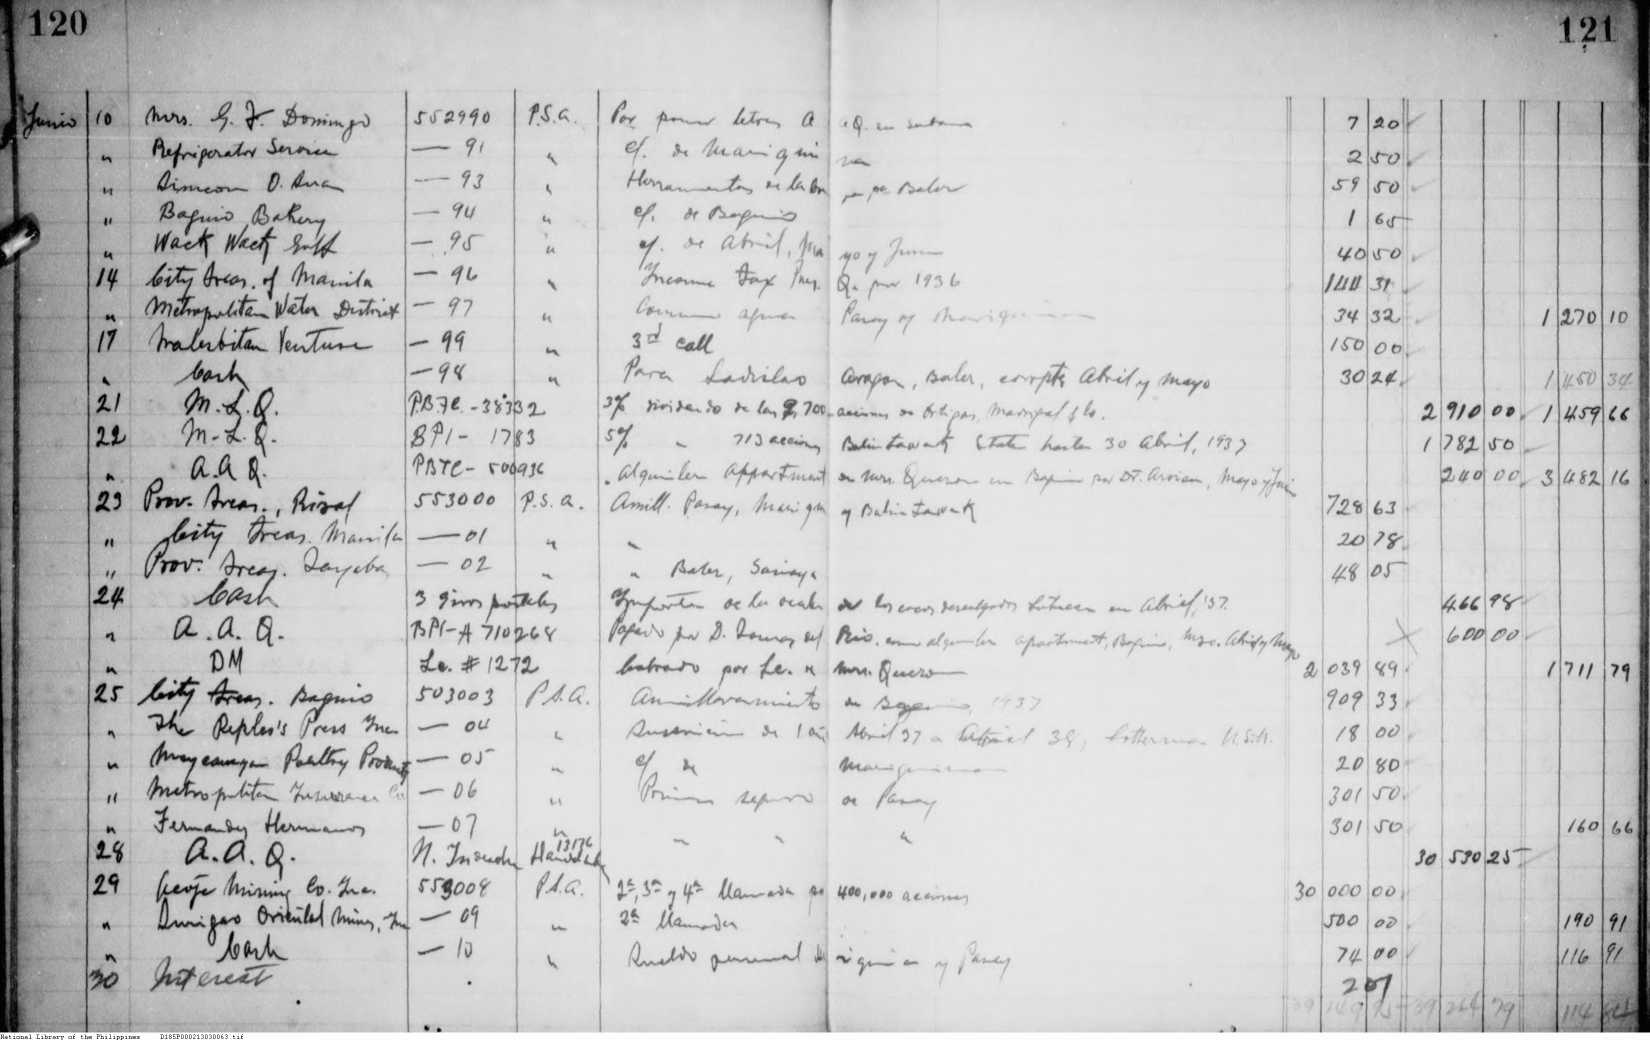 120 121
Junio 10 Mrs. G. F. Domingo 552990 P.S.A. Por poner letras A.Q. en 7 20
" Refrigerator Service — 91 " c/. de Mariquina 2 50
" Simeon O. — 93 " Herramientas de labranza para Baler 59 50
" Baguio Bakery — 94 " c/. de Baguio 1 65
" Wack Wack Golf — 95 " c/. de Abril, Mayo y Junio 40 50
14 City Treas. of Manila — 96 " Income Tax Q. por 1936 144 31
" Metropolitan Water District — 97 " Consumo agua Pasay y Mariquina 34 32 1 270 10
17 Venture — 99 " 3rd call 150 00
" Cash — 98 " Para Ladislao Aragon, Baler, Abril y Mayo 30 24 1 450 34
21 M.L.Q. P.B.T.C. - 38332 3% dividendo de las 9,700 acciones de Ortigas, Madrigal y Co. 2 910 00 1 459 66
22 M.L.Q. BPI - 1783 5% " 713 acciones Balintawak Estate hasta 30 Abril, 1937 1 782 50
" A.A.Q. PBTC - 500936 Alquiler Appartment de Mrs. Quezon en Baguio por Dr. Mayo y Junio 240 00 3 482 16
23 Prov. Treas., Rizal 553000 P.S.A. Amill. Pasay, Mariquina y Balintawak 728 63
" City Treas. Manila — 01 " " 20 78
" Prov. Treas. Tayabas — 02 " " Baler, Sariaya 48 05
24 Cash 3 giros postales Importe de la de los cocos en Abril, '37. 466 98
" A.A.Q. BPI - A 710268 Pagado por D. Tomas del Rio. como alquiler apartment, Baguio, Mzo. Abril y Mayo 600 00
" DM Lc. # 1272 Cobrado por Lc. a Mrs. Quezon 2 039 89 1 711 79
25 City Treas. Baguio 503003 P.S.A. Amillaramiento de Baguio, 1937 909 33
" The People's Press Inc — 04 " Suscricion de 1 año Abril 37 a Abril 38, 18 00
" Poultry Products — 05 " c/ de Mariquina 20 80
" Metropolitan Insurance Co — 06 " Primas seguro de Pasay 301 50
" Fernandez Hermanos — 07 " " " " 301 50 160 66
28 A.A.Q. N. 13176 30 530 25
29 Mining Co. Inc. 553008 P.S.A. 2ª, 3ª y 4ª llamada por 400,000 acciones 30 000 00
" Surigao Oriental Mines, Inc — 09 " 2ª llamada 500 00 190 91
" Cash — 10 " Sueldo personal Mariquina y Pasay 74 00 116 91
30 Interest 2 07
National Library of the Philippines D185P000213030063.tif